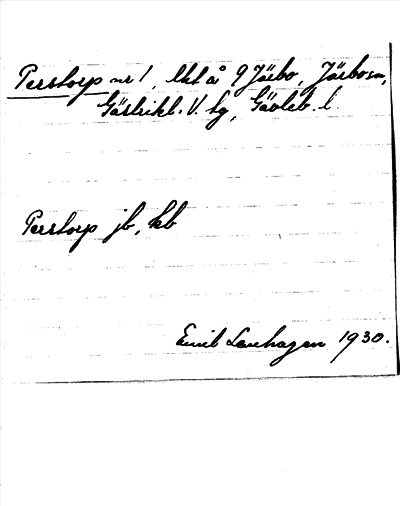 Perstorp nr 1, lht å 9 Järbo, Järbo sn,
Gästrikl. V. tg, Gävleb. l.
Perstorp jb, kb
Emil Lenhagen 1930.